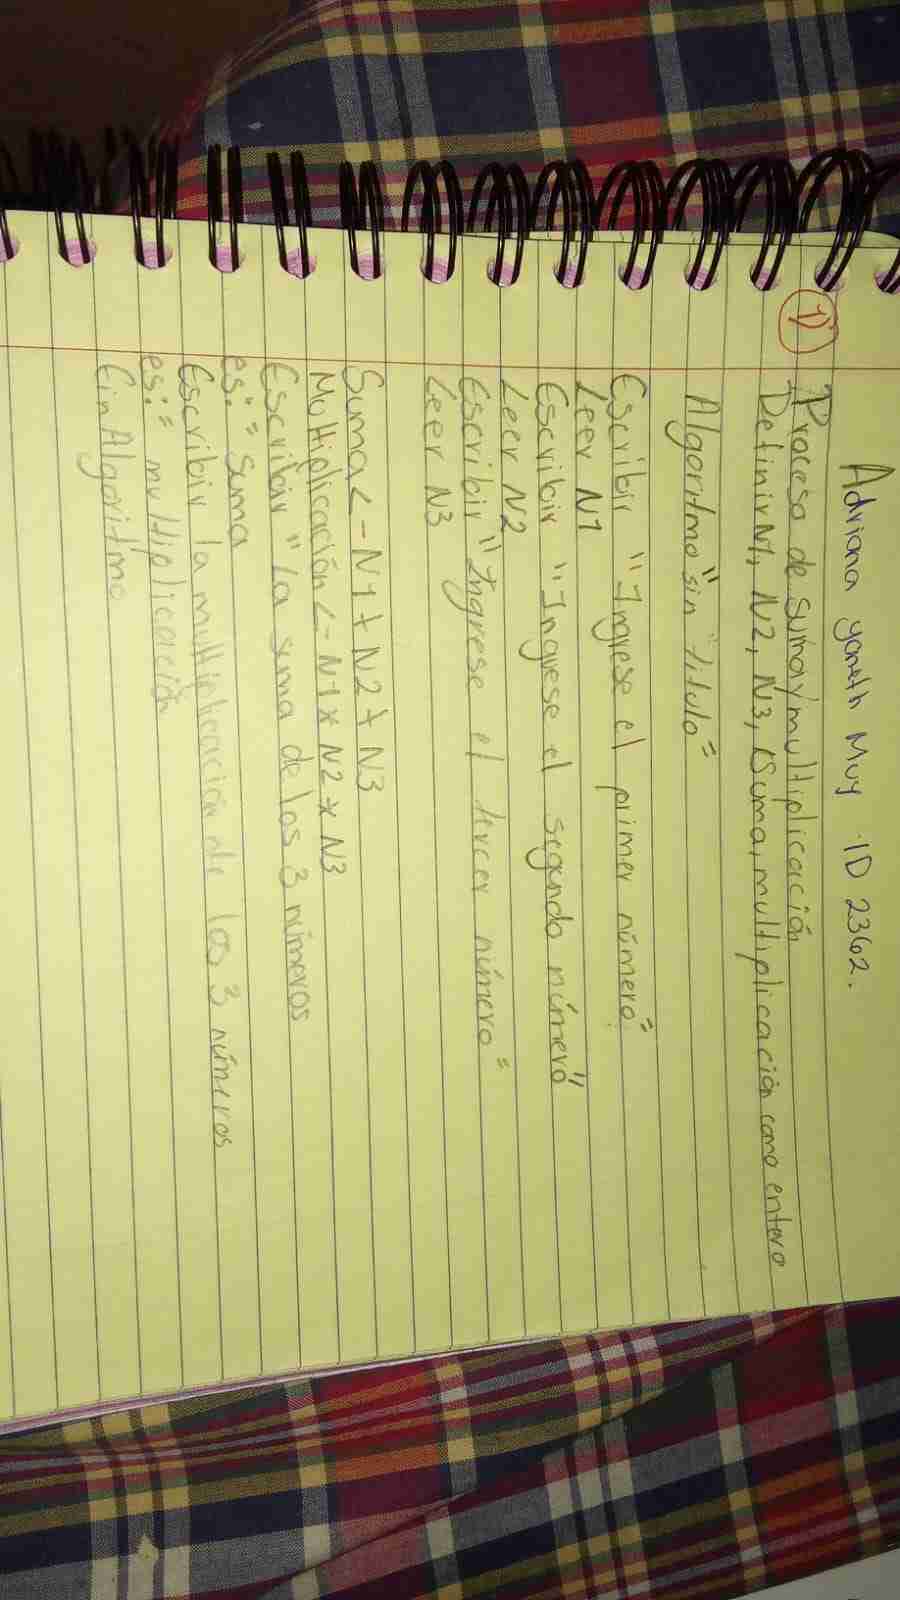 Adriana yaneth Muy ID 2362.
1) Proceso de suma y multiplicación
Definir N1, N2, N3, (Suma, multiplicación como entero
Algoritmo "sin título"
Escribir "Ingrese el primer número"
Leer N1
Escribir "Ingrese el segundo número"
Leer N2
Escribir "Ingrese el tercer número"
Leer N3
Suma <- N1 + N2 + N3
Multiplicación <- N1 x N2 x N3
Escribir "La suma de los 3 números
es:" suma
Escribir la multiplicación de los 3 números
es:" multiplicación
Fin Algoritmo